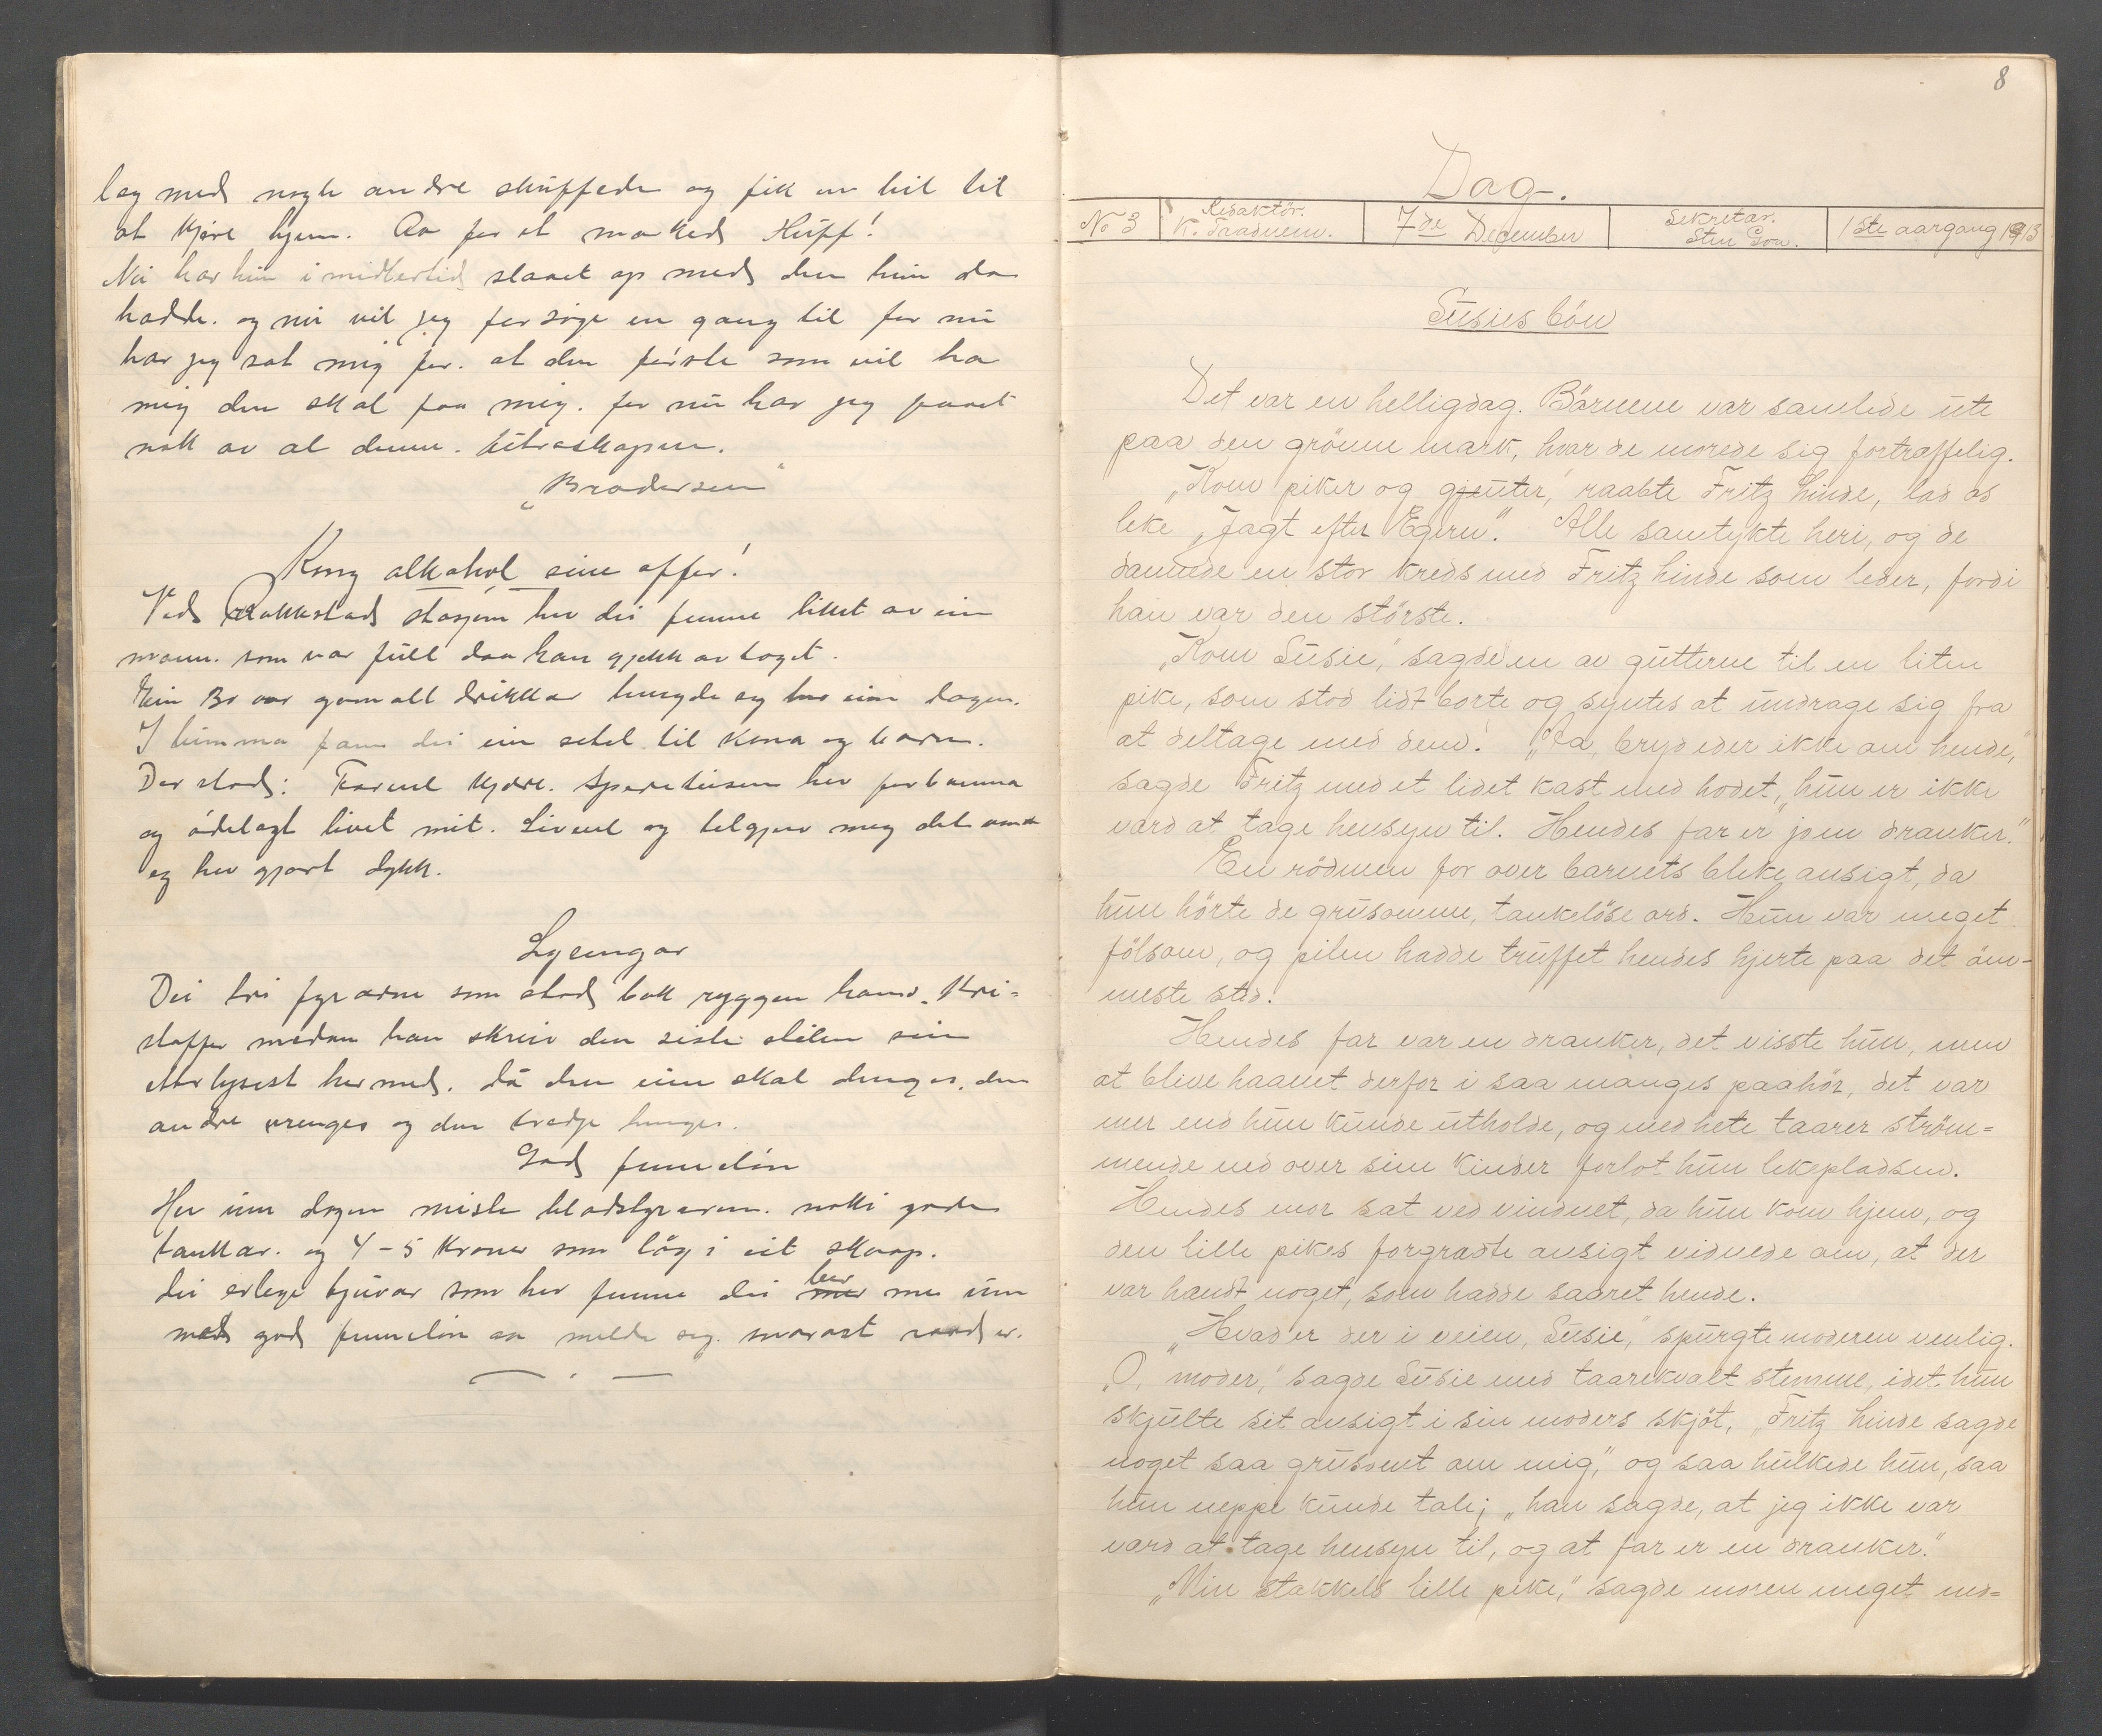 lag med nogle andre skuffede og fik en bil til
at kjøre hjem. Aa for et marked Huff!
Nu har hun imidlertid slaaet op med den hun da
hadde. og nu vil jeg forsøge en gang til for nu
har jeg sat mig for. at den første som vil ha
mig den skal faa mig. for nu har jeg faaet
nok av al denne
"Brodersen"
Kong alkohol sine offer!
Ved Rakkestad stasjon hev dei funne liket av ein
mann. som var full daa han gjekk av toget.
Ein 80 aar gamall drikkar hengde seg her ein dagen.
I lumma fann dei ein setel til kona og barn.
Der stod: Farvel kjære. hev forbanna
og ødelagt livet mit. Livvel og tilgjev meg det vonde
eg hev gjort dykk.
Lysingar
Dei tri fyrarne som stod bak ryggen hans. Kri-
stoffer medan han skreiv den siste stilen sin
etterlysest hermed. Då den eine skal denges. den
andre vrenges og den tredje henges.
God funneløn
Her um dagen miste bladstyraren. nokre gode
tankar. og 4-5 kroner som låg i eit skaap.
Dei erlege tjuvar som hev funne dei ber me um
mod god funneløn aa melde seg. snarast raad er.
8
Dag.
No 3
Redaktör.
K. Taadnem.
7de December
Sekretær.
Sten Gon.
1ste aargang 1913
Susies bön
Det var en helligdag. Börnene var samlede ute
paa den grönne mark, hvor de morede sig fortræffelig.
„Kom piker og gjenter," raabte Fritz hinde, lad os
leke „Jagt efter Egern". Alle samtykte heri, og de
dannede en stor kreds med Fritz hinde som leder, fordi
han var den störste.
„Kom Susie," sagde en av gutterne til en liten
pike, som stod lidt borte og syntes at undrage sig fra
at deltage med dem. „Ja, bryd eder ikke om hende,"
sagde Fritz med et lidet kast med hodet, „hun er ikke
værd at tage hensyn til. Hendes far er jo en dranker."
En rödmen for over barnets bleke ansigt, da
hun hörte de grusomme, tankelöse ord. Hun var meget
fölsom, og pilen hadde truffet hendes hjerte paa det öm-
meste sted.
Hendes far var en dranker, det visste hun, men
at blive haanet derfor i saa manges paahör, det var
mer end hun kunde utholde, og med hete taarer ström=
mende ned over sine kinder forlot hun lekepladsen.
Hendes mor sat ved vinduet, da hun kom hjem, og
den lille pikes forgrædte ansigt vidnede om, at der
var hændt noget, som hadde saaret hende.
„Hvad er der i veien, Susie," spurgte moderen venlig.
„O, moder," sagde Susie med taarekvalt stemme, idet hun
skjulte sit ansigt i sin moders skjöt, „Fritz hinde sagde
noget saa grusomt om mig," og saa hulkede hun, saa
hun neppe kunde tale; „han sagde, at jeg ikke var
værd at tage hensyn til, og at far er en dranker."
„Min stakkels lille pike," sagde moren meget ned=